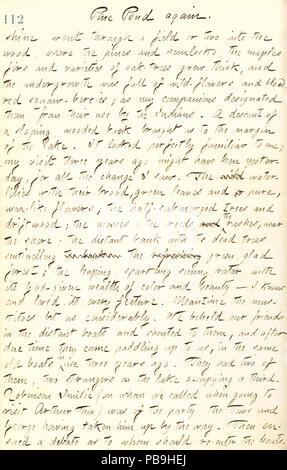 112
Pine Pond again.
shine went through a field or two into the
wood where the pines and hemlocks, the maples
firs and varieties of oak trees grew thick, and
the undergrowth was full of wild-flowers and blood
red squaw-berries, as my companions designated
them from their use by the Indians. A descent of
a sloping wooded bank brought us to the margin
of the lake. It looked perfectly familiar to me;
my visit three years ago might have been yester-
day, for all the change I saw. The water
lilies with their broad, green leaves and pure,
wax-like flowers, the half-submerged trees and
driftwood; the mosses; the reeds and the rushes, near
the shore; the distant bank with its dead trees
sentinelling the green glad
forest; the leaping, sparkling sunny water with
its God-given wealth of color and beauty — I knew
and loved its every feature. Meantime the mus-
kitoes bit us considerably. We beheld our friends
in the distant boats and shouted to them, and after
due time they came paddling up to us, in the same
old boats as three years ago. They had two of
them, two strangers on the lake occupying a third.
Robinson Smilie (on whom we called when going to
visit Arthur Tew) was of the party, the Tews and
George having taken him up by the way. Then en-
sued a debate as to whom should re-enter the boats.
alamy
PB9HEJ